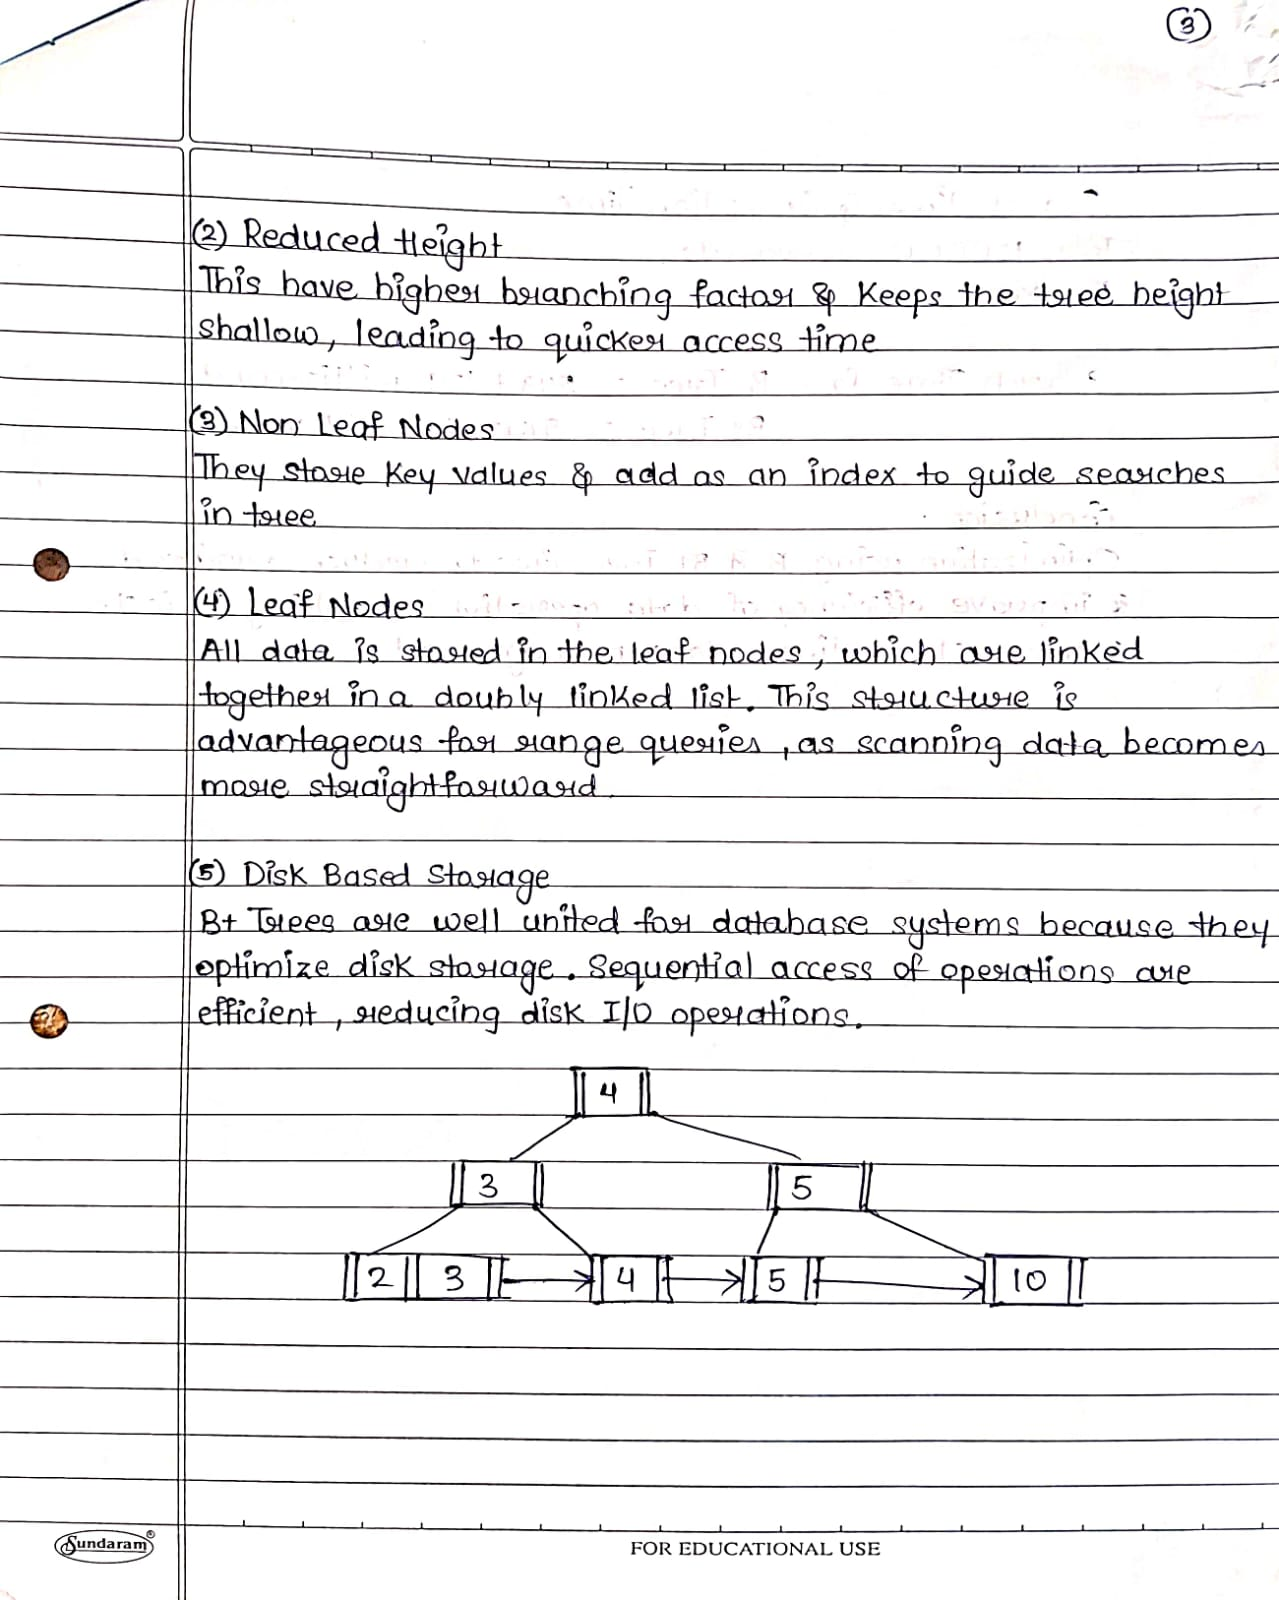 3
(2) Reduced Height
This have higher branching factor & Keeps the tree height
shallow, leading to quicker access time
(3) Non Leaf Nodes
They store Key values & add as an index to guide searches
in tree
(4) Leaf Nodes
All data is stored in the leaf nodes, which are linked
together in a doubly linked list. This structure is
advantageous for range queries, as scanning data becomes
more straightforward.
(5) Disk Based Storage
B+ Trees are well united for database systems because they
optimize disk storage. Sequential access of operations are
efficient, reducing disk I/O operations.
4
3 5
2 3 4 5 10
Sundaram®
FOR EDUCATIONAL USE